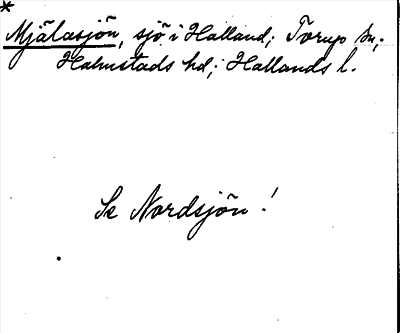 *
Mjälasjön, sjö i Halland; Torup sn;
Halmstads hd; Hallands l.
Se Nordsjön!